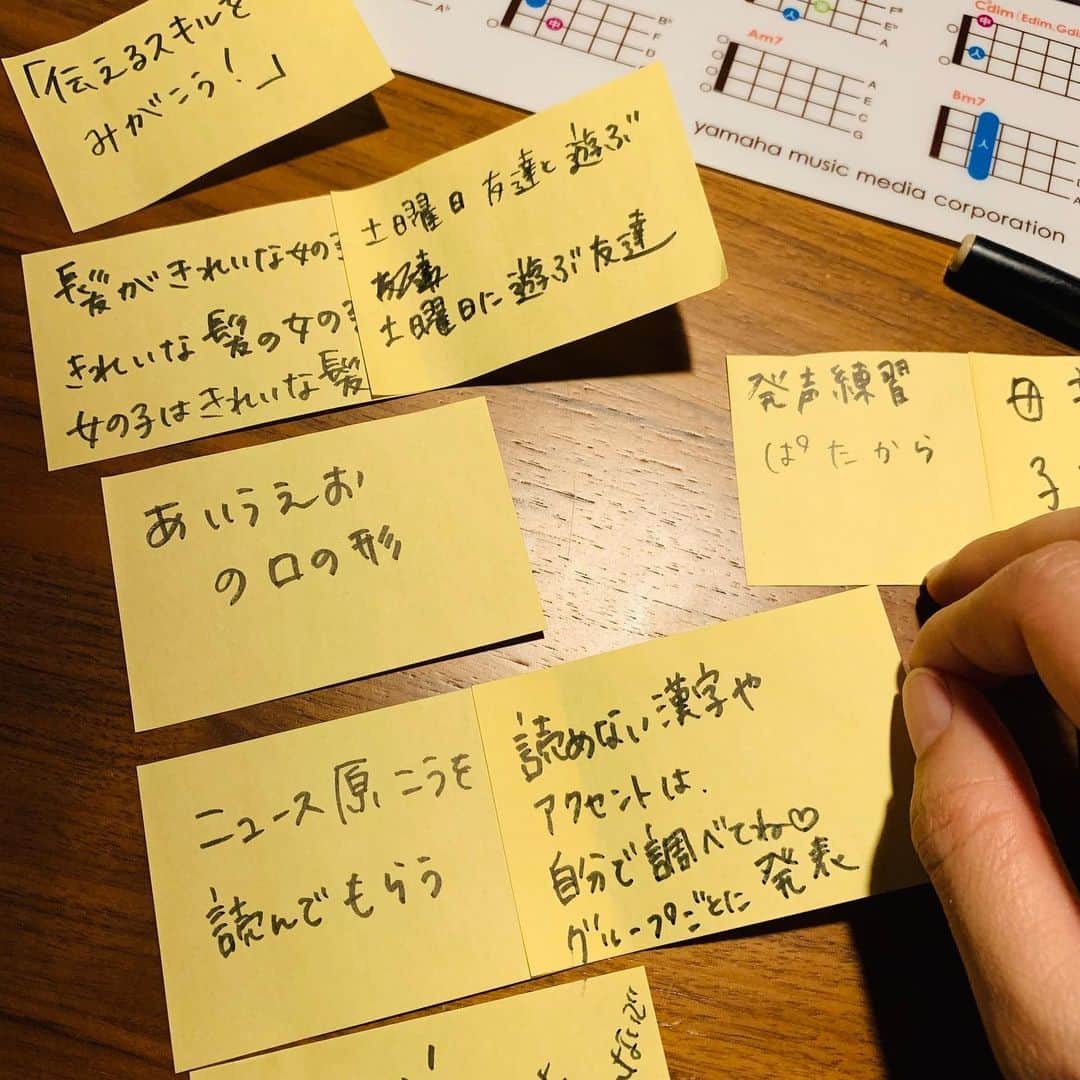 「伝えるスキルを
みがこう！」
髪がきれいな女の
きれいな髪の女の
女の子はきれいな髪
土曜日 友達と遊ぶ
土曜日に遊ぶ友達
あいうえお
の口の形
発声練習
ぱたから
母
子
ニュース原こうを
読んでもらう
読めない漢字や
アクセントは、
自分で調べてね♡
グループごとに発表
ないで
Am7
A
E
C
G
B♭
F
D
F#
E
A
C#dim(Edim,Gdi
Bm7
yamaha music media corporation